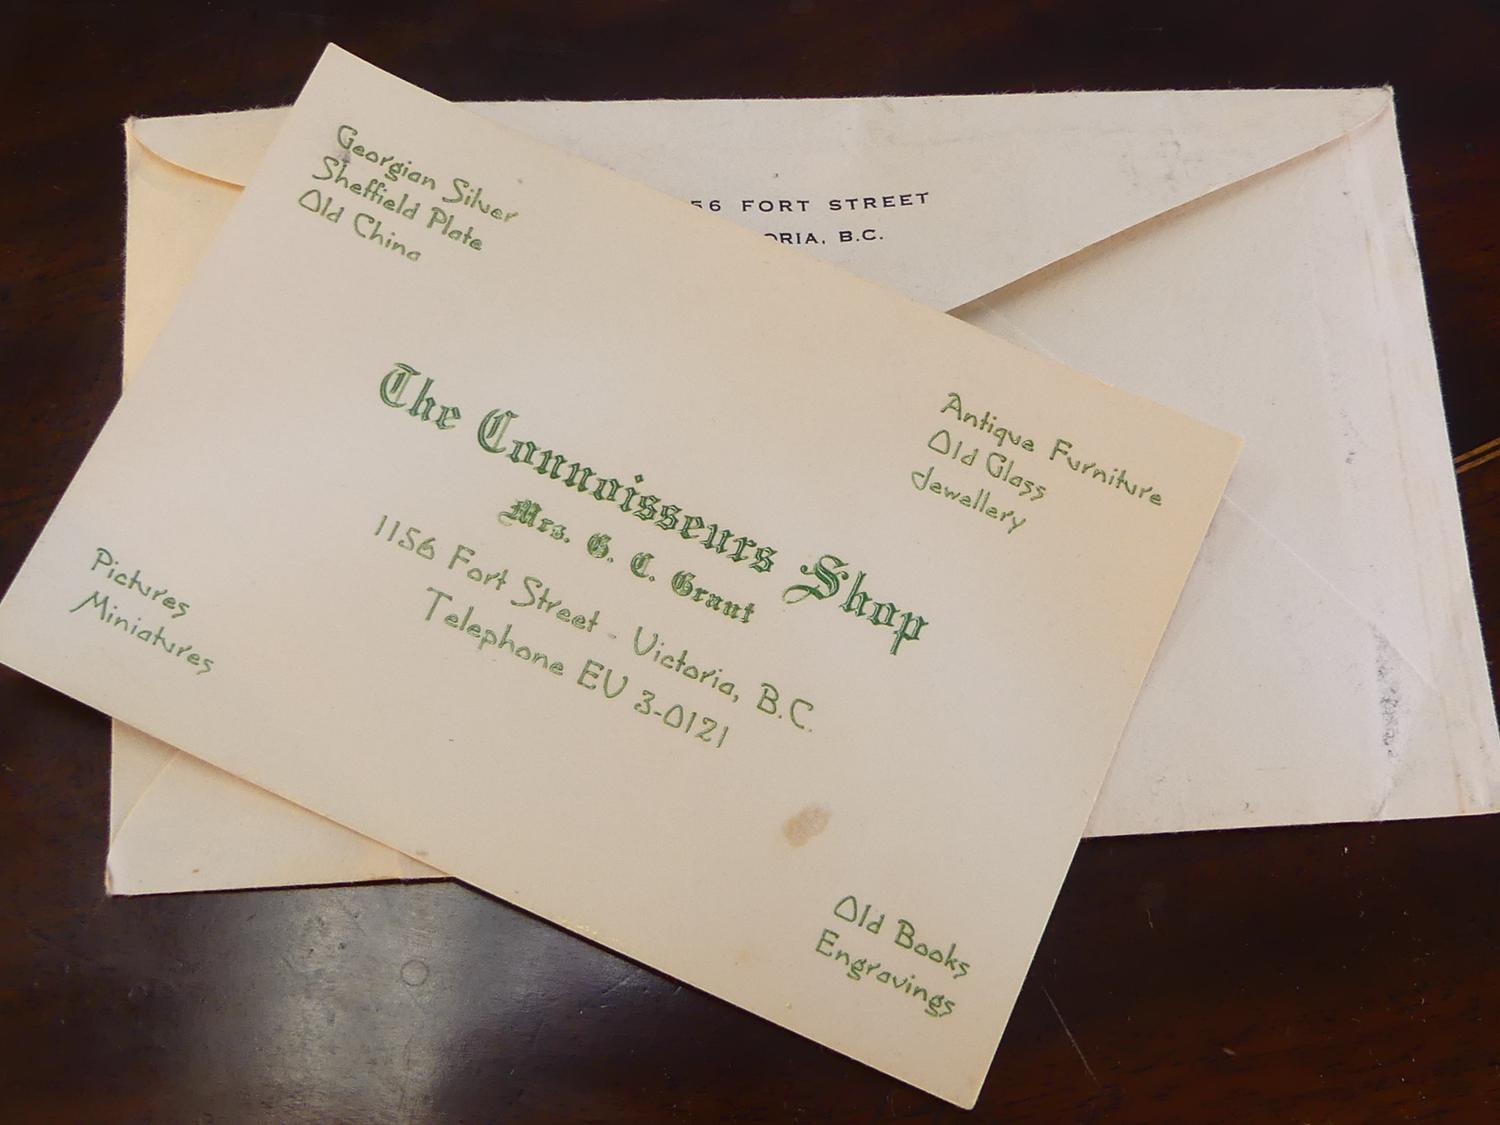 Georgian Silver
Sheffield Plate
Old China
Antique Furniture
Old Glass
Jewellery
The Connoisseurs Shop
Mrs. G. C. Grant
1156 Fort Street - Victoria, B.C.
Telephone EV 3-0121
Pictures
Miniatures
Old Books
Engravings
56 FORT STREET
ORIA, B.C.